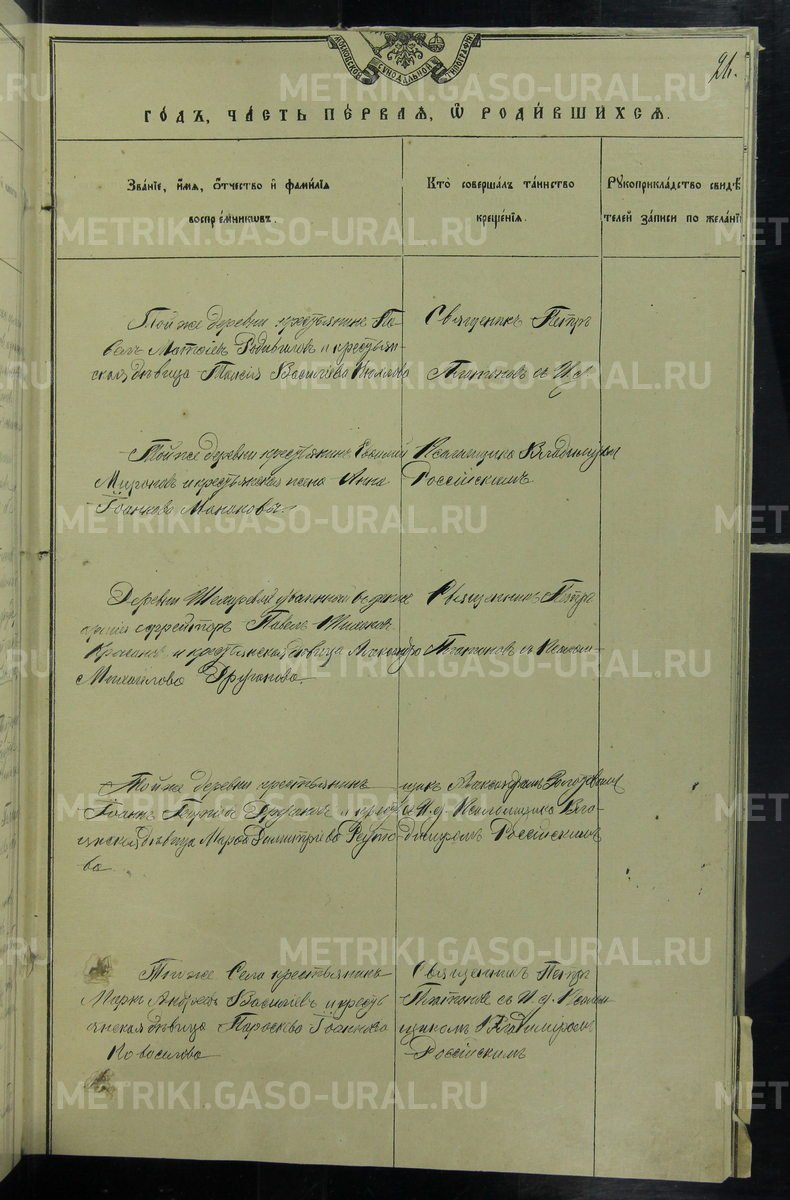 МОСКОВСКОЙ СѴНОДАЛЬНОЙ ТИПОГРАФІИ
21.
ГОДЪ, ЧАСТЬ ПЕРВАЯ, Ѡ РОДИВШИХСЯ.
Званіе, имя, отчество и фамилія
воспріемниковъ.
Кто совершалъ таинство
крещенія.
Рукоприкладство свидѣ
телей записи по желані
Той же деревни крестьянинъ Па-
велъ Матѳіевъ и крестьян-
ская дѣвица Таисія Василіева
Священникъ Петръ
Платоновъ съ И. д.
Той же деревни крестьянинъ Евѳимій
Мироновъ и крестьянская жена Анна
Іоаннова Манакова.
Псаломщика Владиміром
Россійскимъ.
Деревни
ефрейторъ Павелъ
и крестьянская дѣвица Александра
Михайлова Друганова.
Священникъ Петръ
Платоновъ съ Псалом-
Той же деревни крестьянинъ
Іоаннъ и крестья
нская дѣвица Марѳа Димитріева Реуто-
ва.
щик Александром
И. д. Псаломщика Вла-
диміромъ Россійскимъ
Того же Села крестьянинъ
Марк Андреевъ Василіевъ и кресть
янская дѣвица Параскева Іоаннова
Новоселова
Священникъ Петръ
Платоновъ съ И. д. Псалом
щикомъ Владиміромъ
Россійскимъ
METRIKI.GASO-URAL.RU